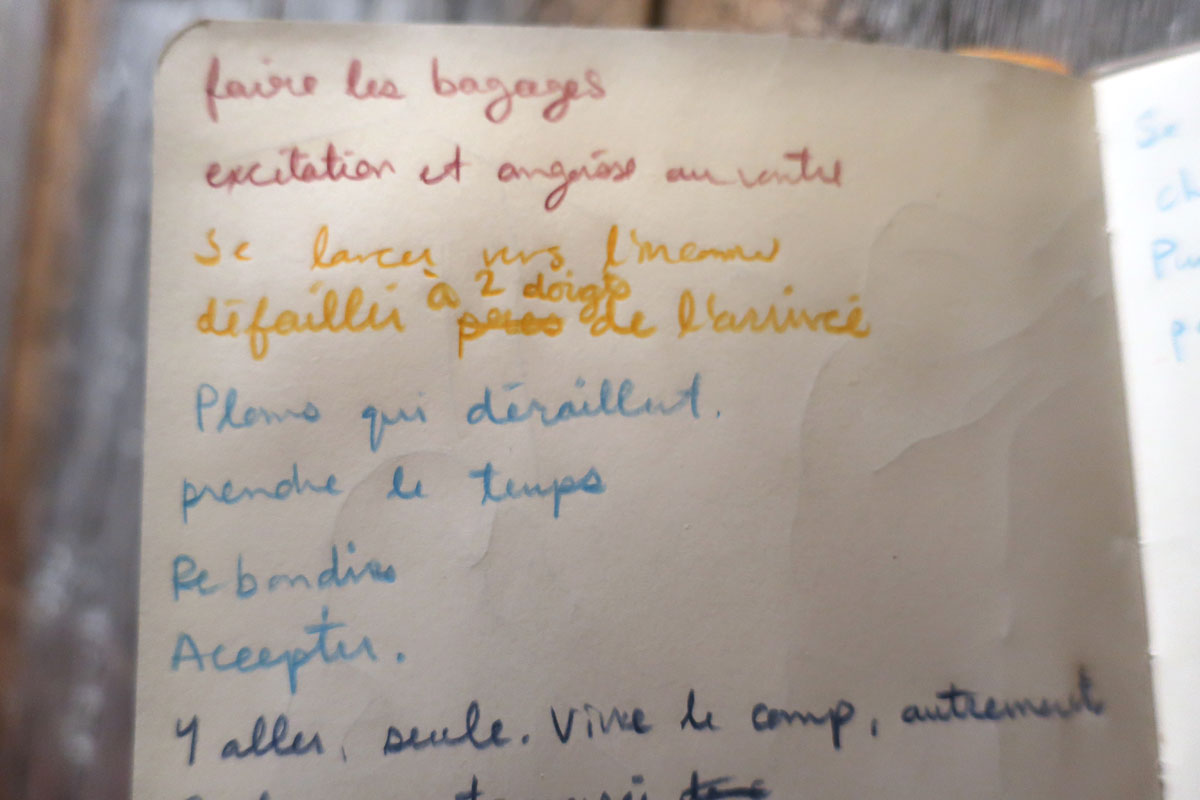 faire les bagages
excitation et angoisse au ventre
Se lancer vers l'inconnu
défaillir à 2 doigts de l'arrivée
Plans qui déraillent.
prendre le temps
Rebondir
Accepter.
Y aller, seule. Vivre le camp, autrement
Se
ch